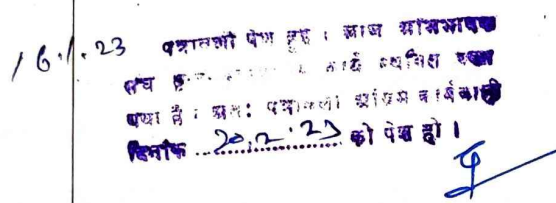 16.1.23 पत्रावली पेश हुई । आज अभिभाषक
संघ द्वारा कार्य स्थगित रखा
गया है । अतः पत्रावली अग्रिम कार्यवाही
दिनांक 20.2.23 को पेश हो ।